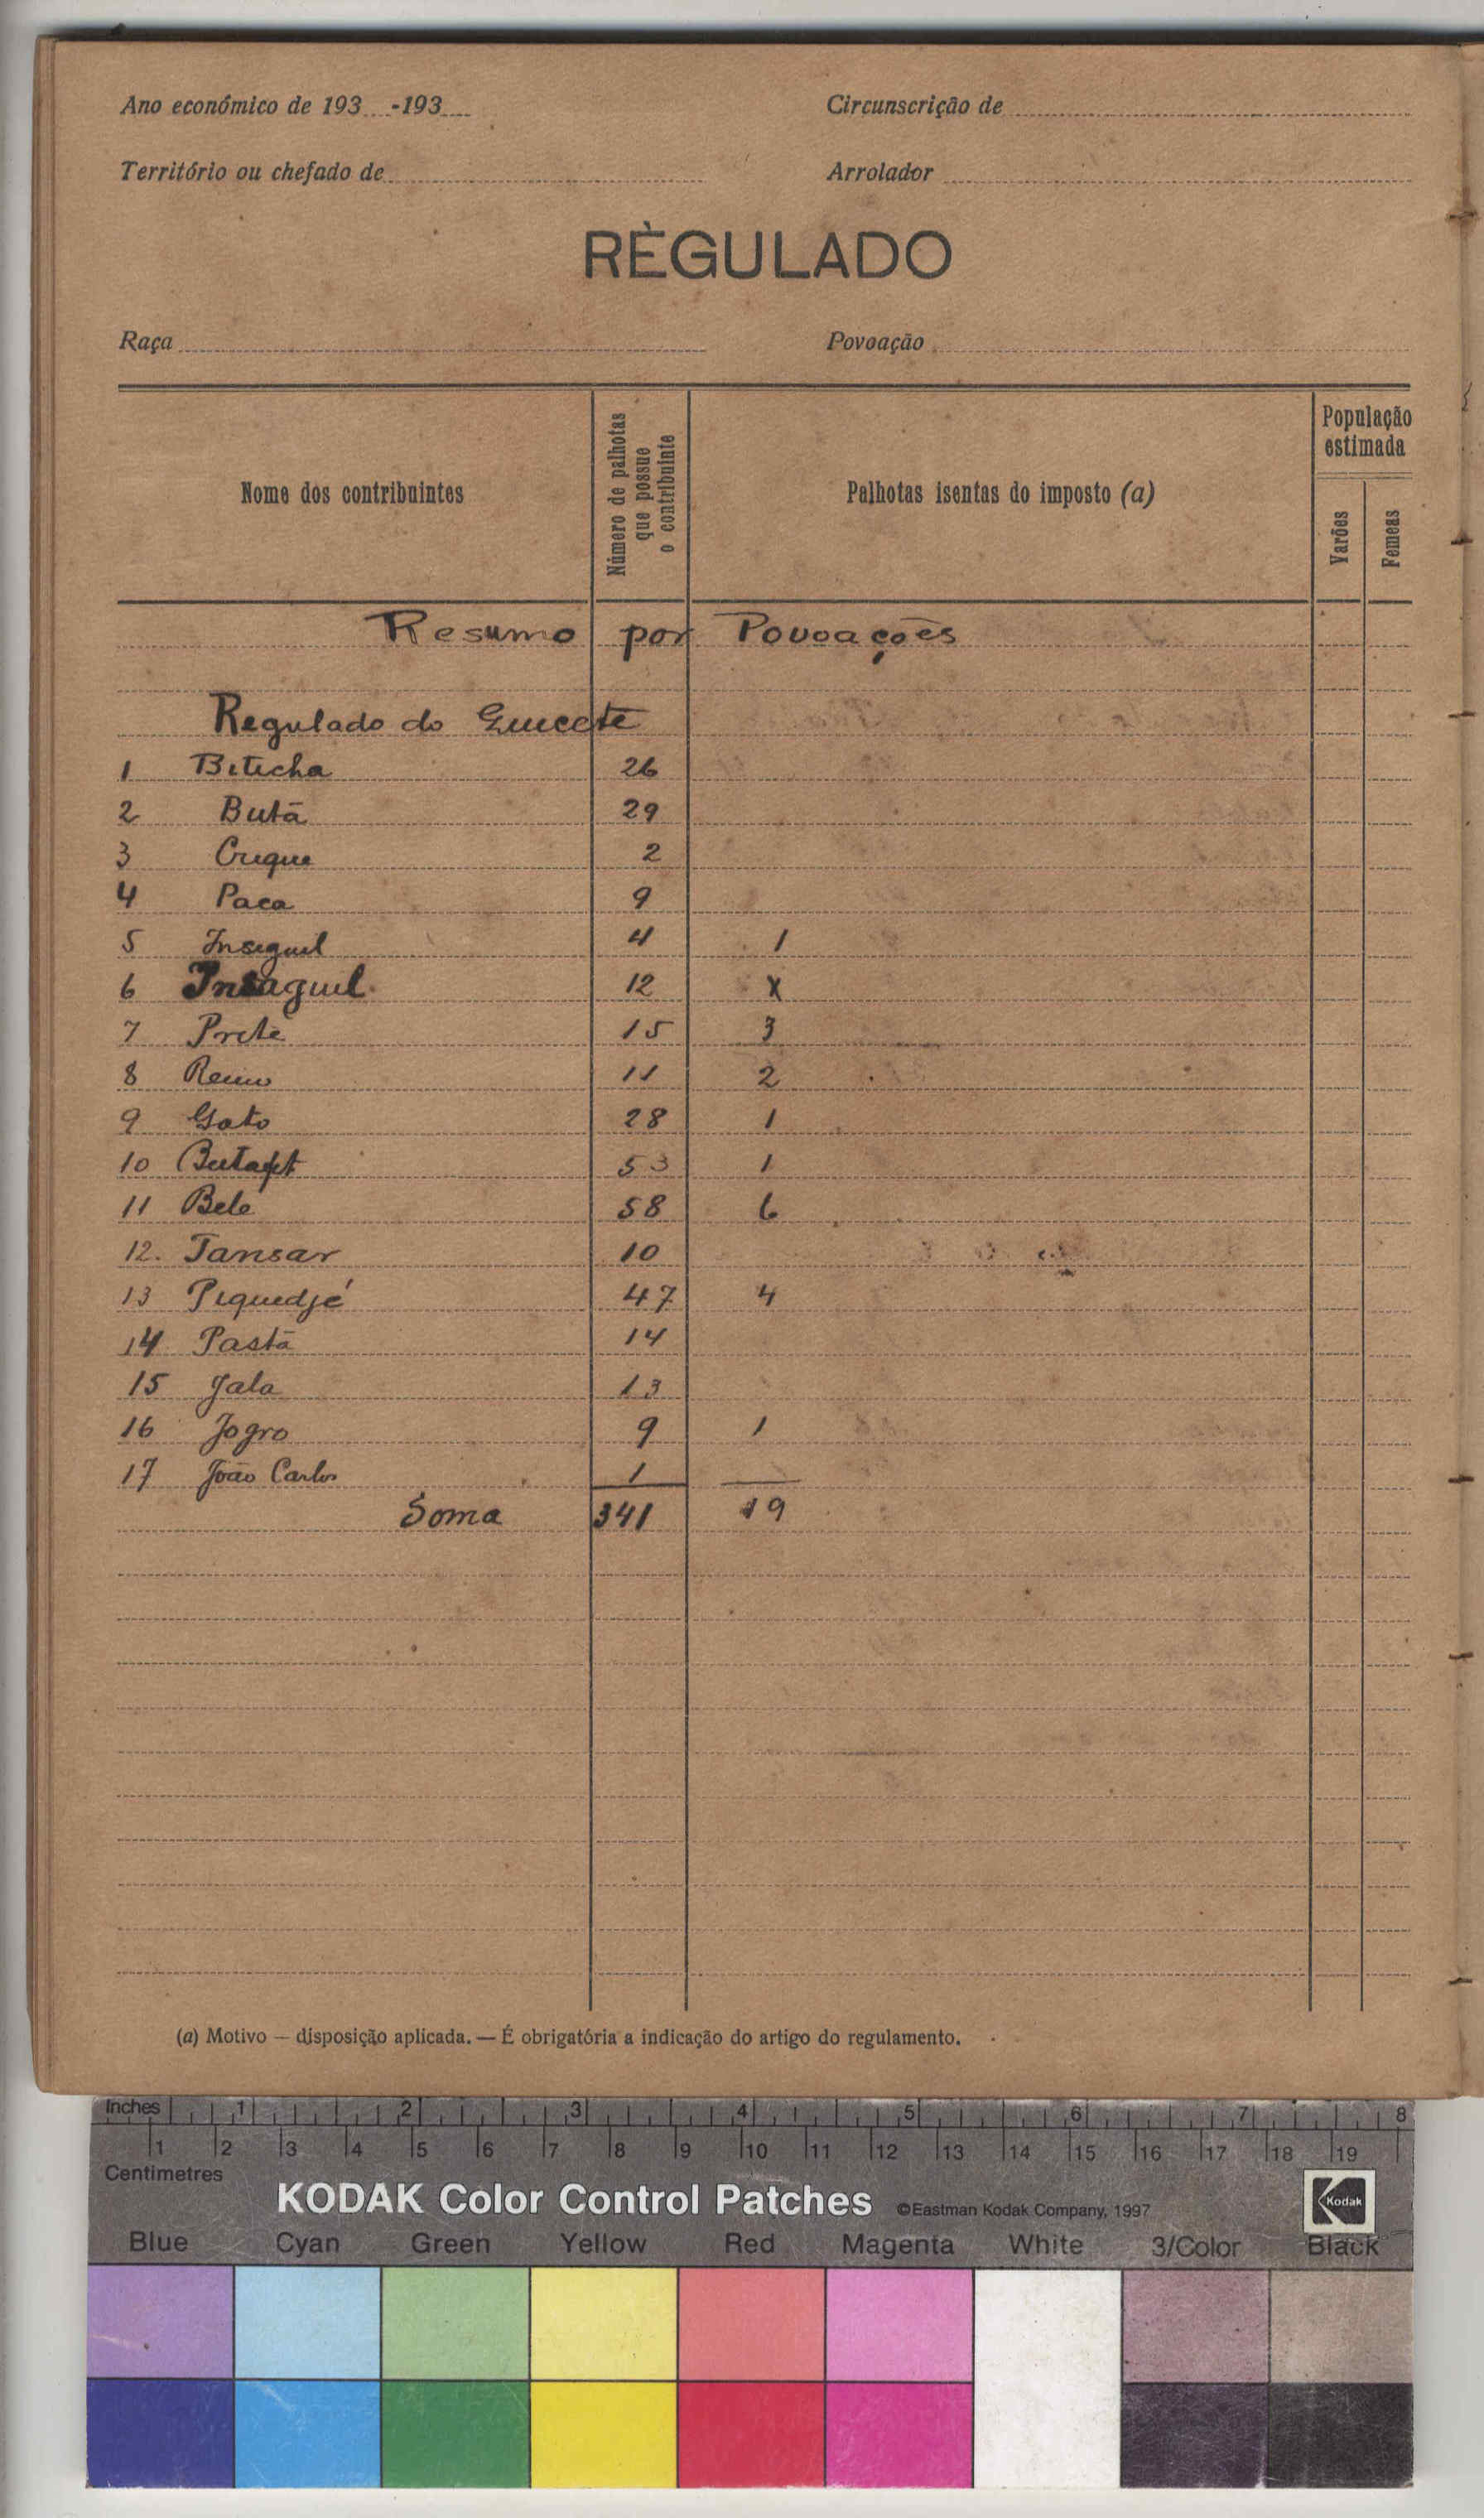 Ano económico de 193....-193....
Circunscrição de
Território ou chefado de
Arrolador
RÈGULADO
Raça
Povoação
Nome dos contribuintes
Número de palhotas que possue o contribuinte
Palhotas isentas do imposto (a)
População estimada
Varões
Femeas
Resumo por Povoações
Regulado do
1 Biticha 26
2 Butā 29
3 2
4 Paca 9
5 4 1
6 Insaguil 12 X
7 Prete 15 3
8 11 2
9 Gato 28 1
10 53 1
11 Bele 58 6
12. Tansar 10
13 Piquedjé 47 4
14 Pastā 14
15 Jala 13
16 Jogro 9 1
17 João Carlos 1
Soma 341 19
(a) Motivo — disposição aplicada. — É obrigatória a indicação do artigo do regulamento.
Inches 1 2 3 4 5 6 7 8
1 2 3 4 5 6 7 8 9 10 11 12 13 14 15 16 17 18 19
Centimetres
KODAK Color Control Patches ©Eastman Kodak Company, 1997 Kodak
Blue Cyan Green Yellow Red Magenta White 3/Color Black